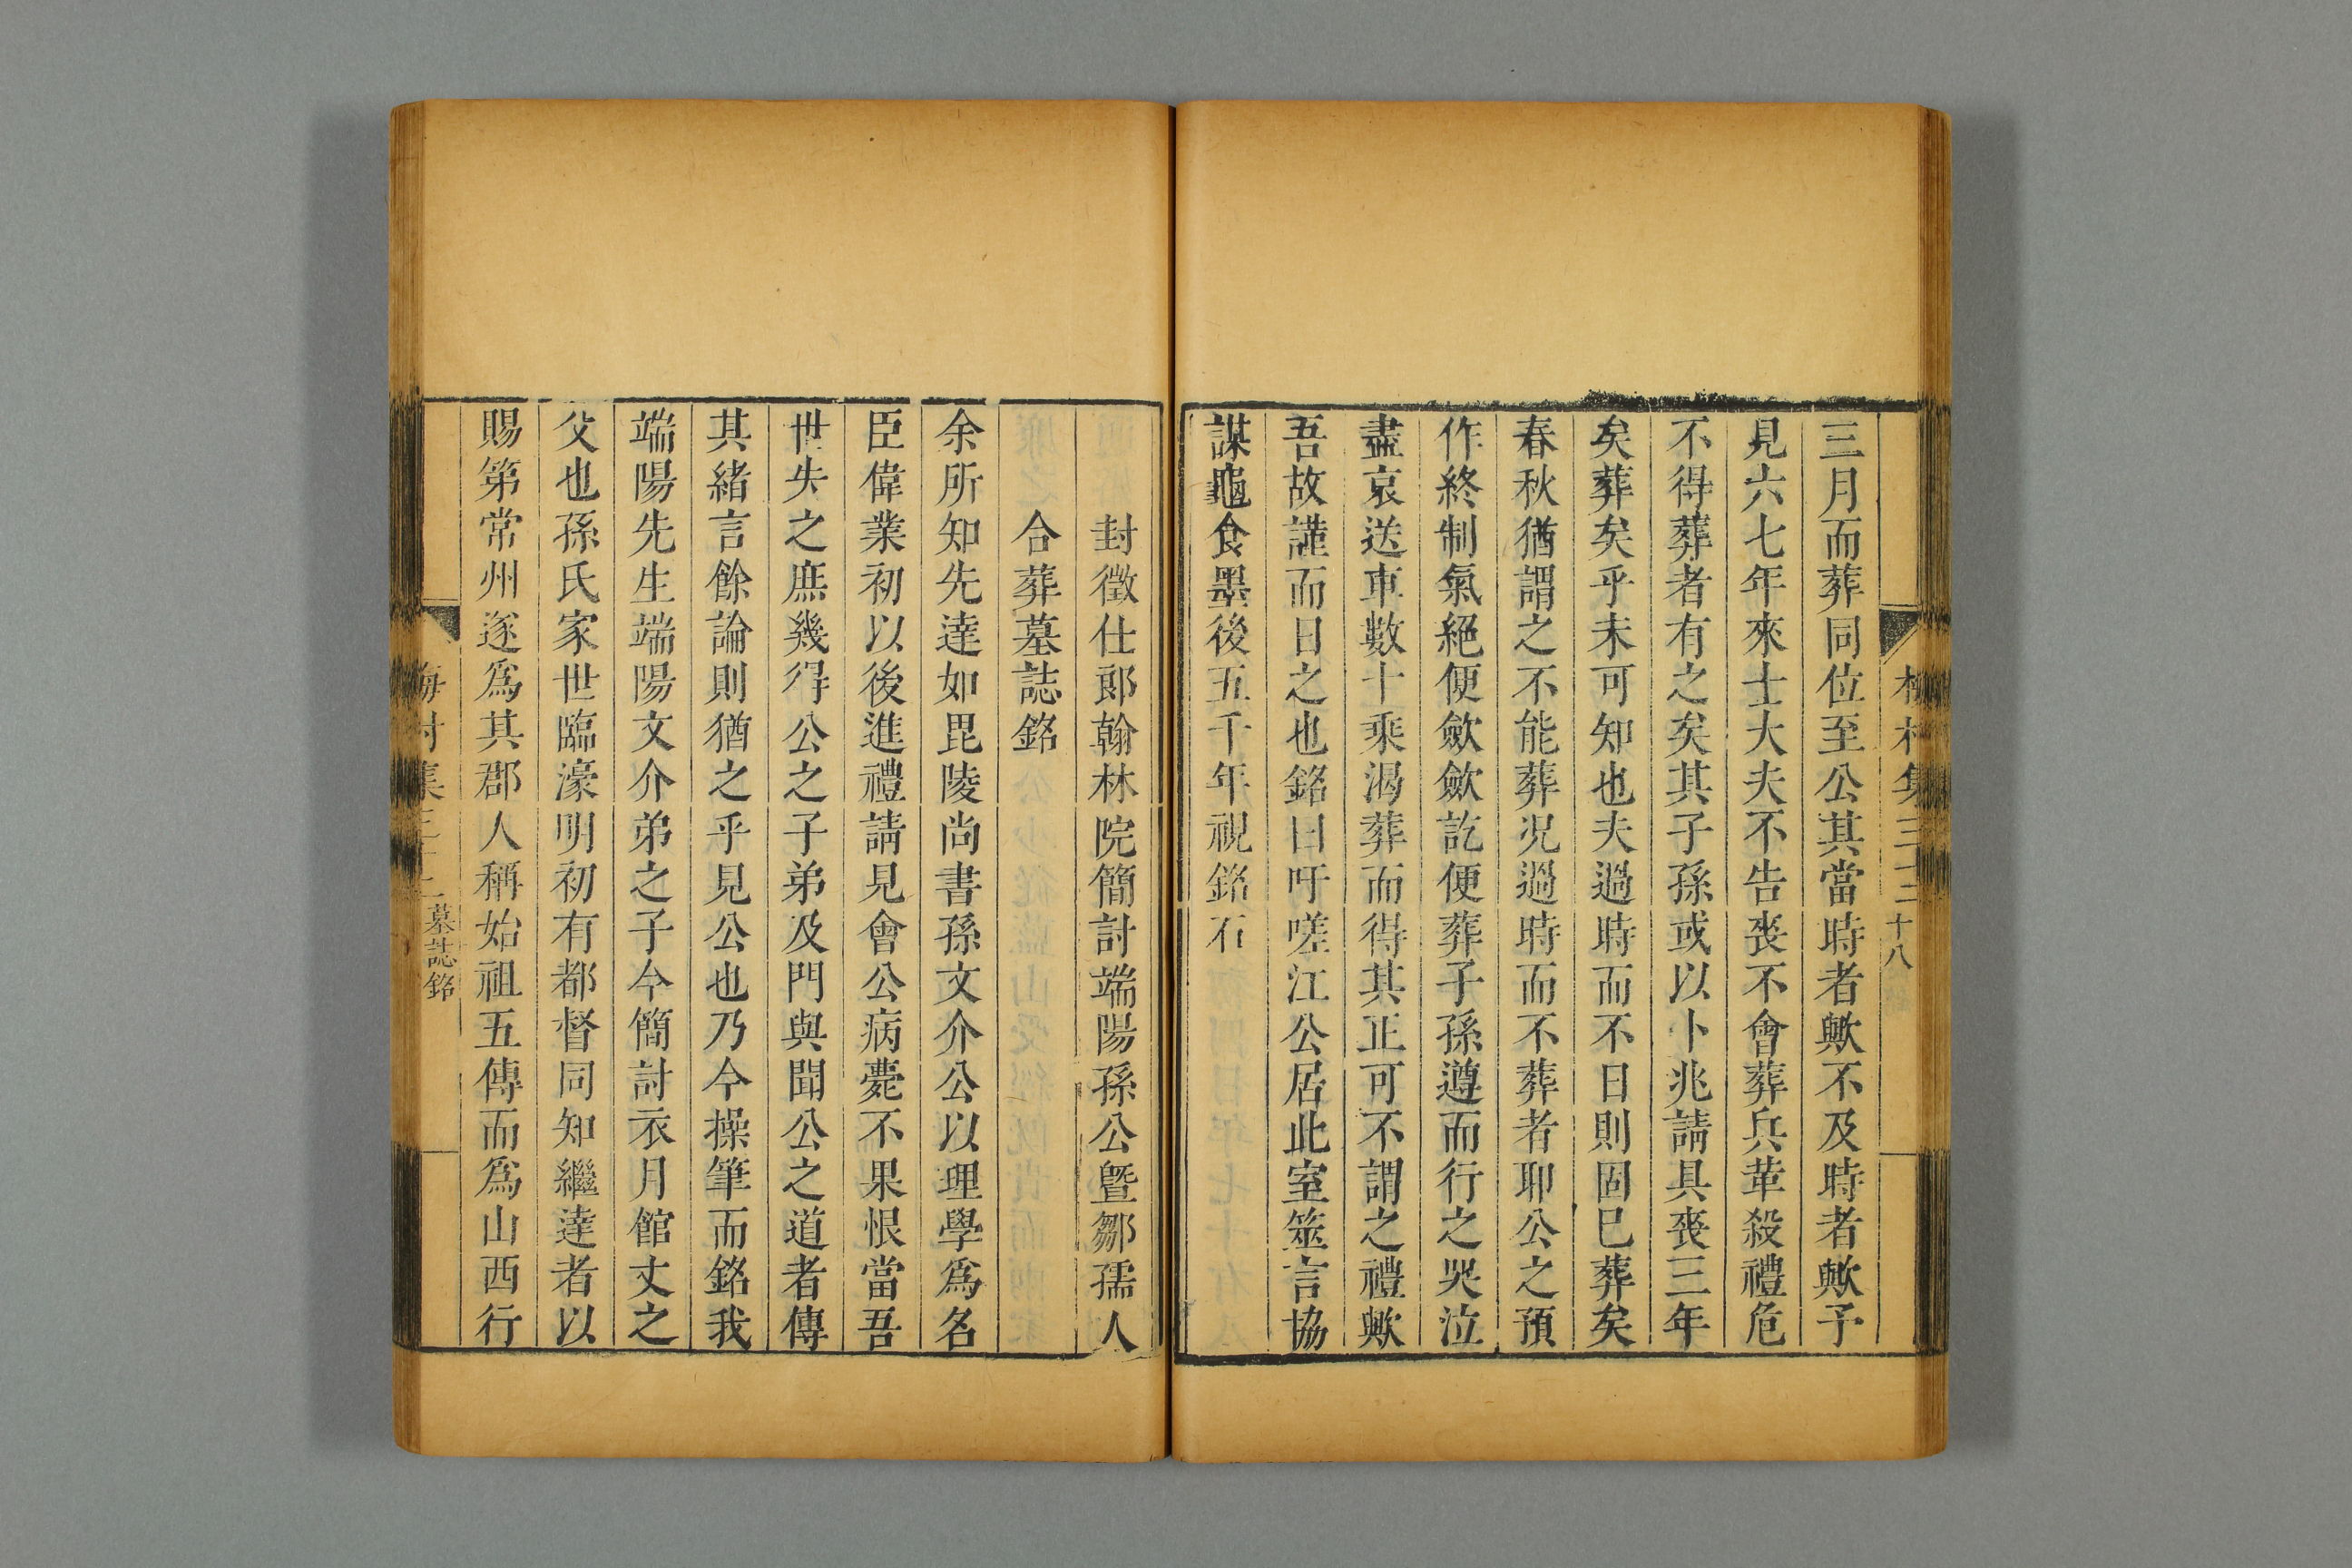 三月而葬同位至公其當時者歟不及時者歟予
見六七年來士大夫不告喪不會葬兵革殺禮危
不得葬者有之矣其子孫或以卜兆請具喪三年
矣葬矣乎未可知也夫過時而不日則固已葬矣
春秋猶謂之不能葬况過時而不葬者耶公之預
作終制氣絕便歛歛訖便葬子孫遵而行之哭泣
盡哀送車數十乘渴葬而得其正可不謂之禮歟
吾故謹而日之也銘曰吁嗟江公居此室筮言協
謀龜食墨後五千年視銘石
梅村集三十二 十八
封徵仕郞翰林院簡討端陽孫公曁鄒孺人
合葬墓誌銘
余所知先達如毘陵尚書孫文介公以理學爲名
臣偉業初以後進禮請見會公病薨不果恨當吾
世失之庶幾得公之子弟及門與聞公之道者傳
其緒言餘論則猶之乎見公也乃今操筆而銘我
端陽先生端陽文介弟之子今簡討衣月館丈之
父也孫氏家世臨濠明初有都督同知繼達者以
賜第常州遂爲其郡人稱始祖五傳而爲山西行
梅村集三十二 墓誌銘